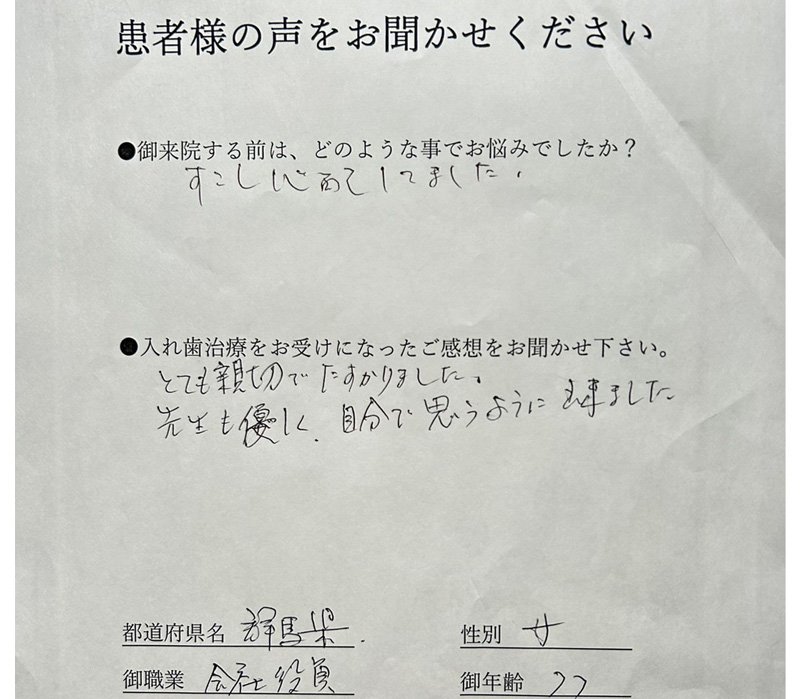 患者様の声をお聞かせください
●御来院する前は、どのような事でお悩みでしたか？
すこし心配してました。
●入れ歯治療をお受けになったご感想をお聞かせ下さい。
とても親切でたすかりました。
先生も優しく、自分で思うように出来ました
都道府県名 群馬県 性別 女
御職業 会社役員 御年齢 77